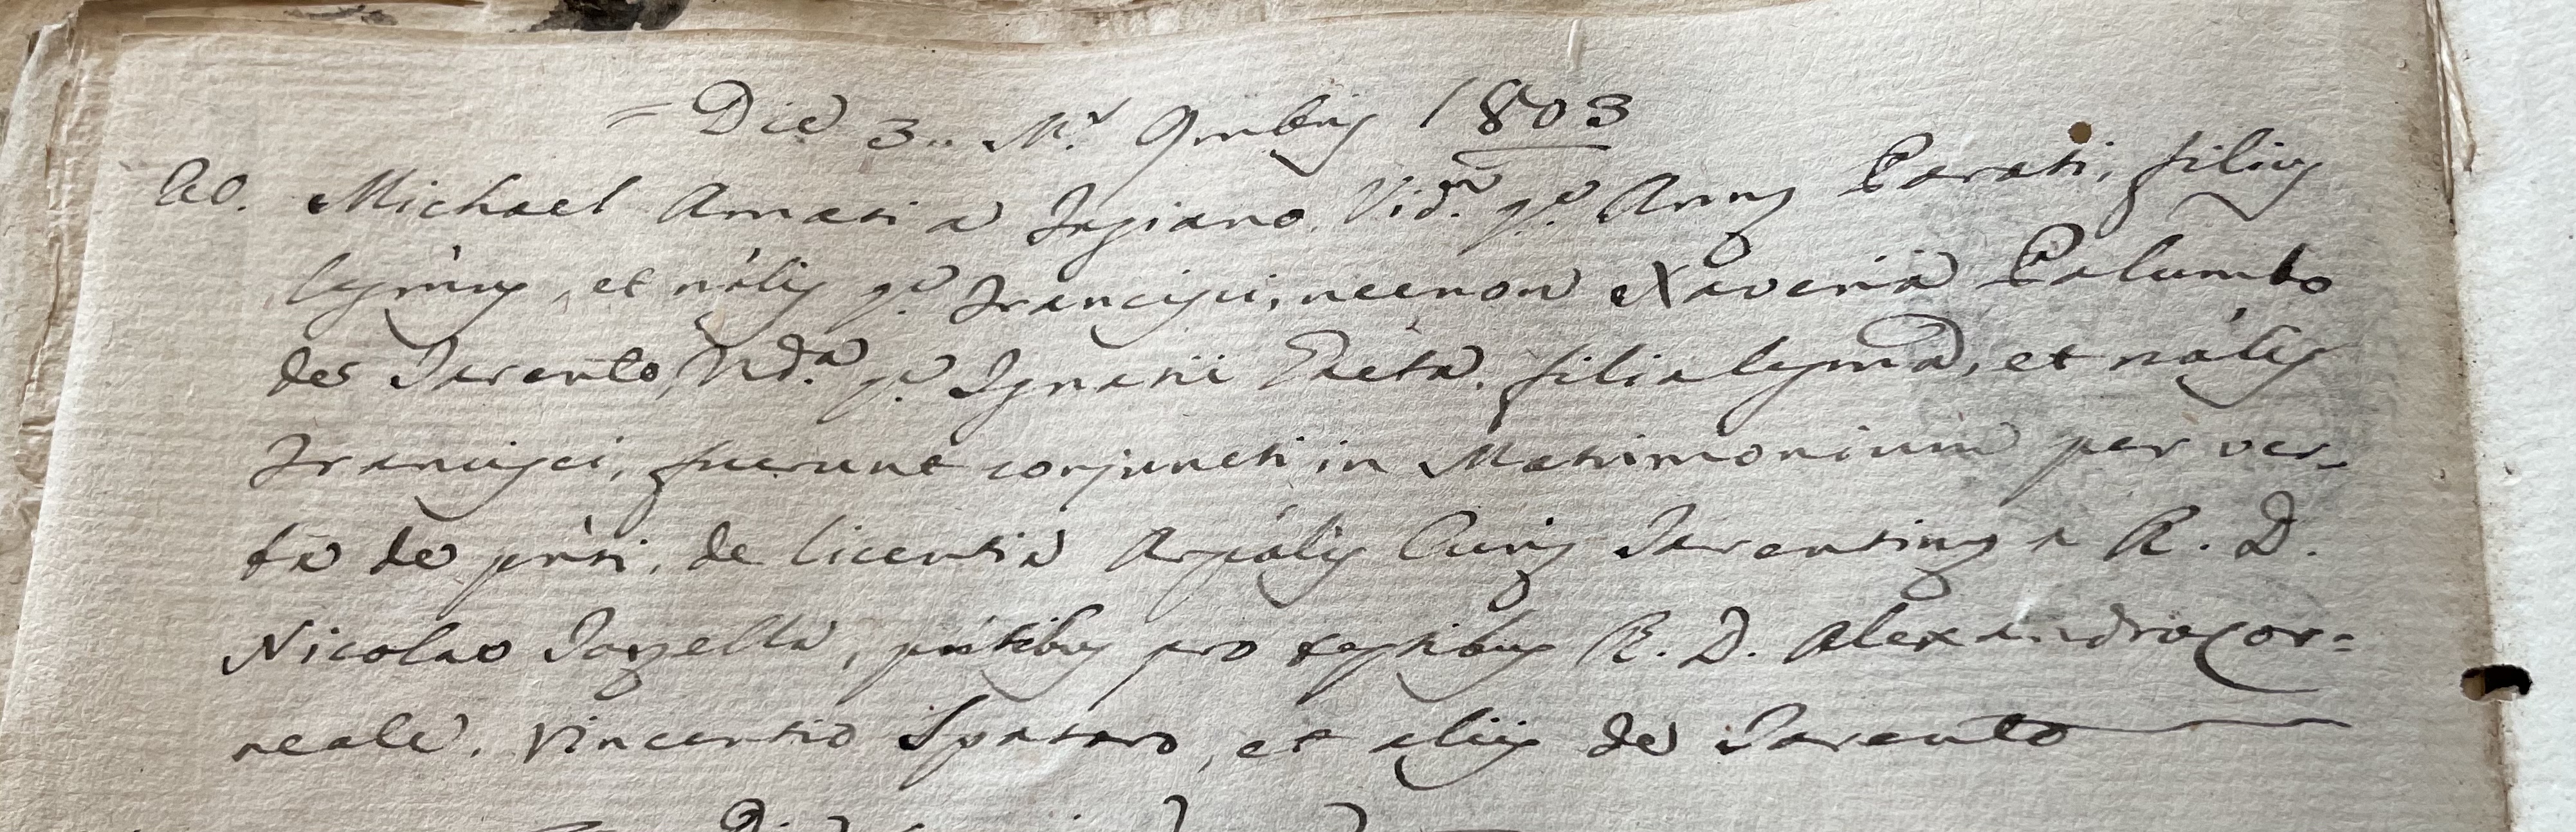 = Die 3.. M.s 9mbris 1803
AD. Michael Amati a Fagiano, Vid.us q.m Annæ Parati, filius
legm̀us, et nàlis q.m Francisci, necnon Xaveria Palumbo
de Tarento, Vid.a q.m Ignatii Gaeta, filia legma, et nàlis
Francisci, fuerunt conjuncti in Matrimonium per ver-
ba de pnti, de licentia Arpàlis Curiæ Tarentinæ a R. D.
Nicolao Tagella, pntibus pro testibus R. D. Alexandro Cor=
reale, Vincentio Spataro, et aliis de Tarento